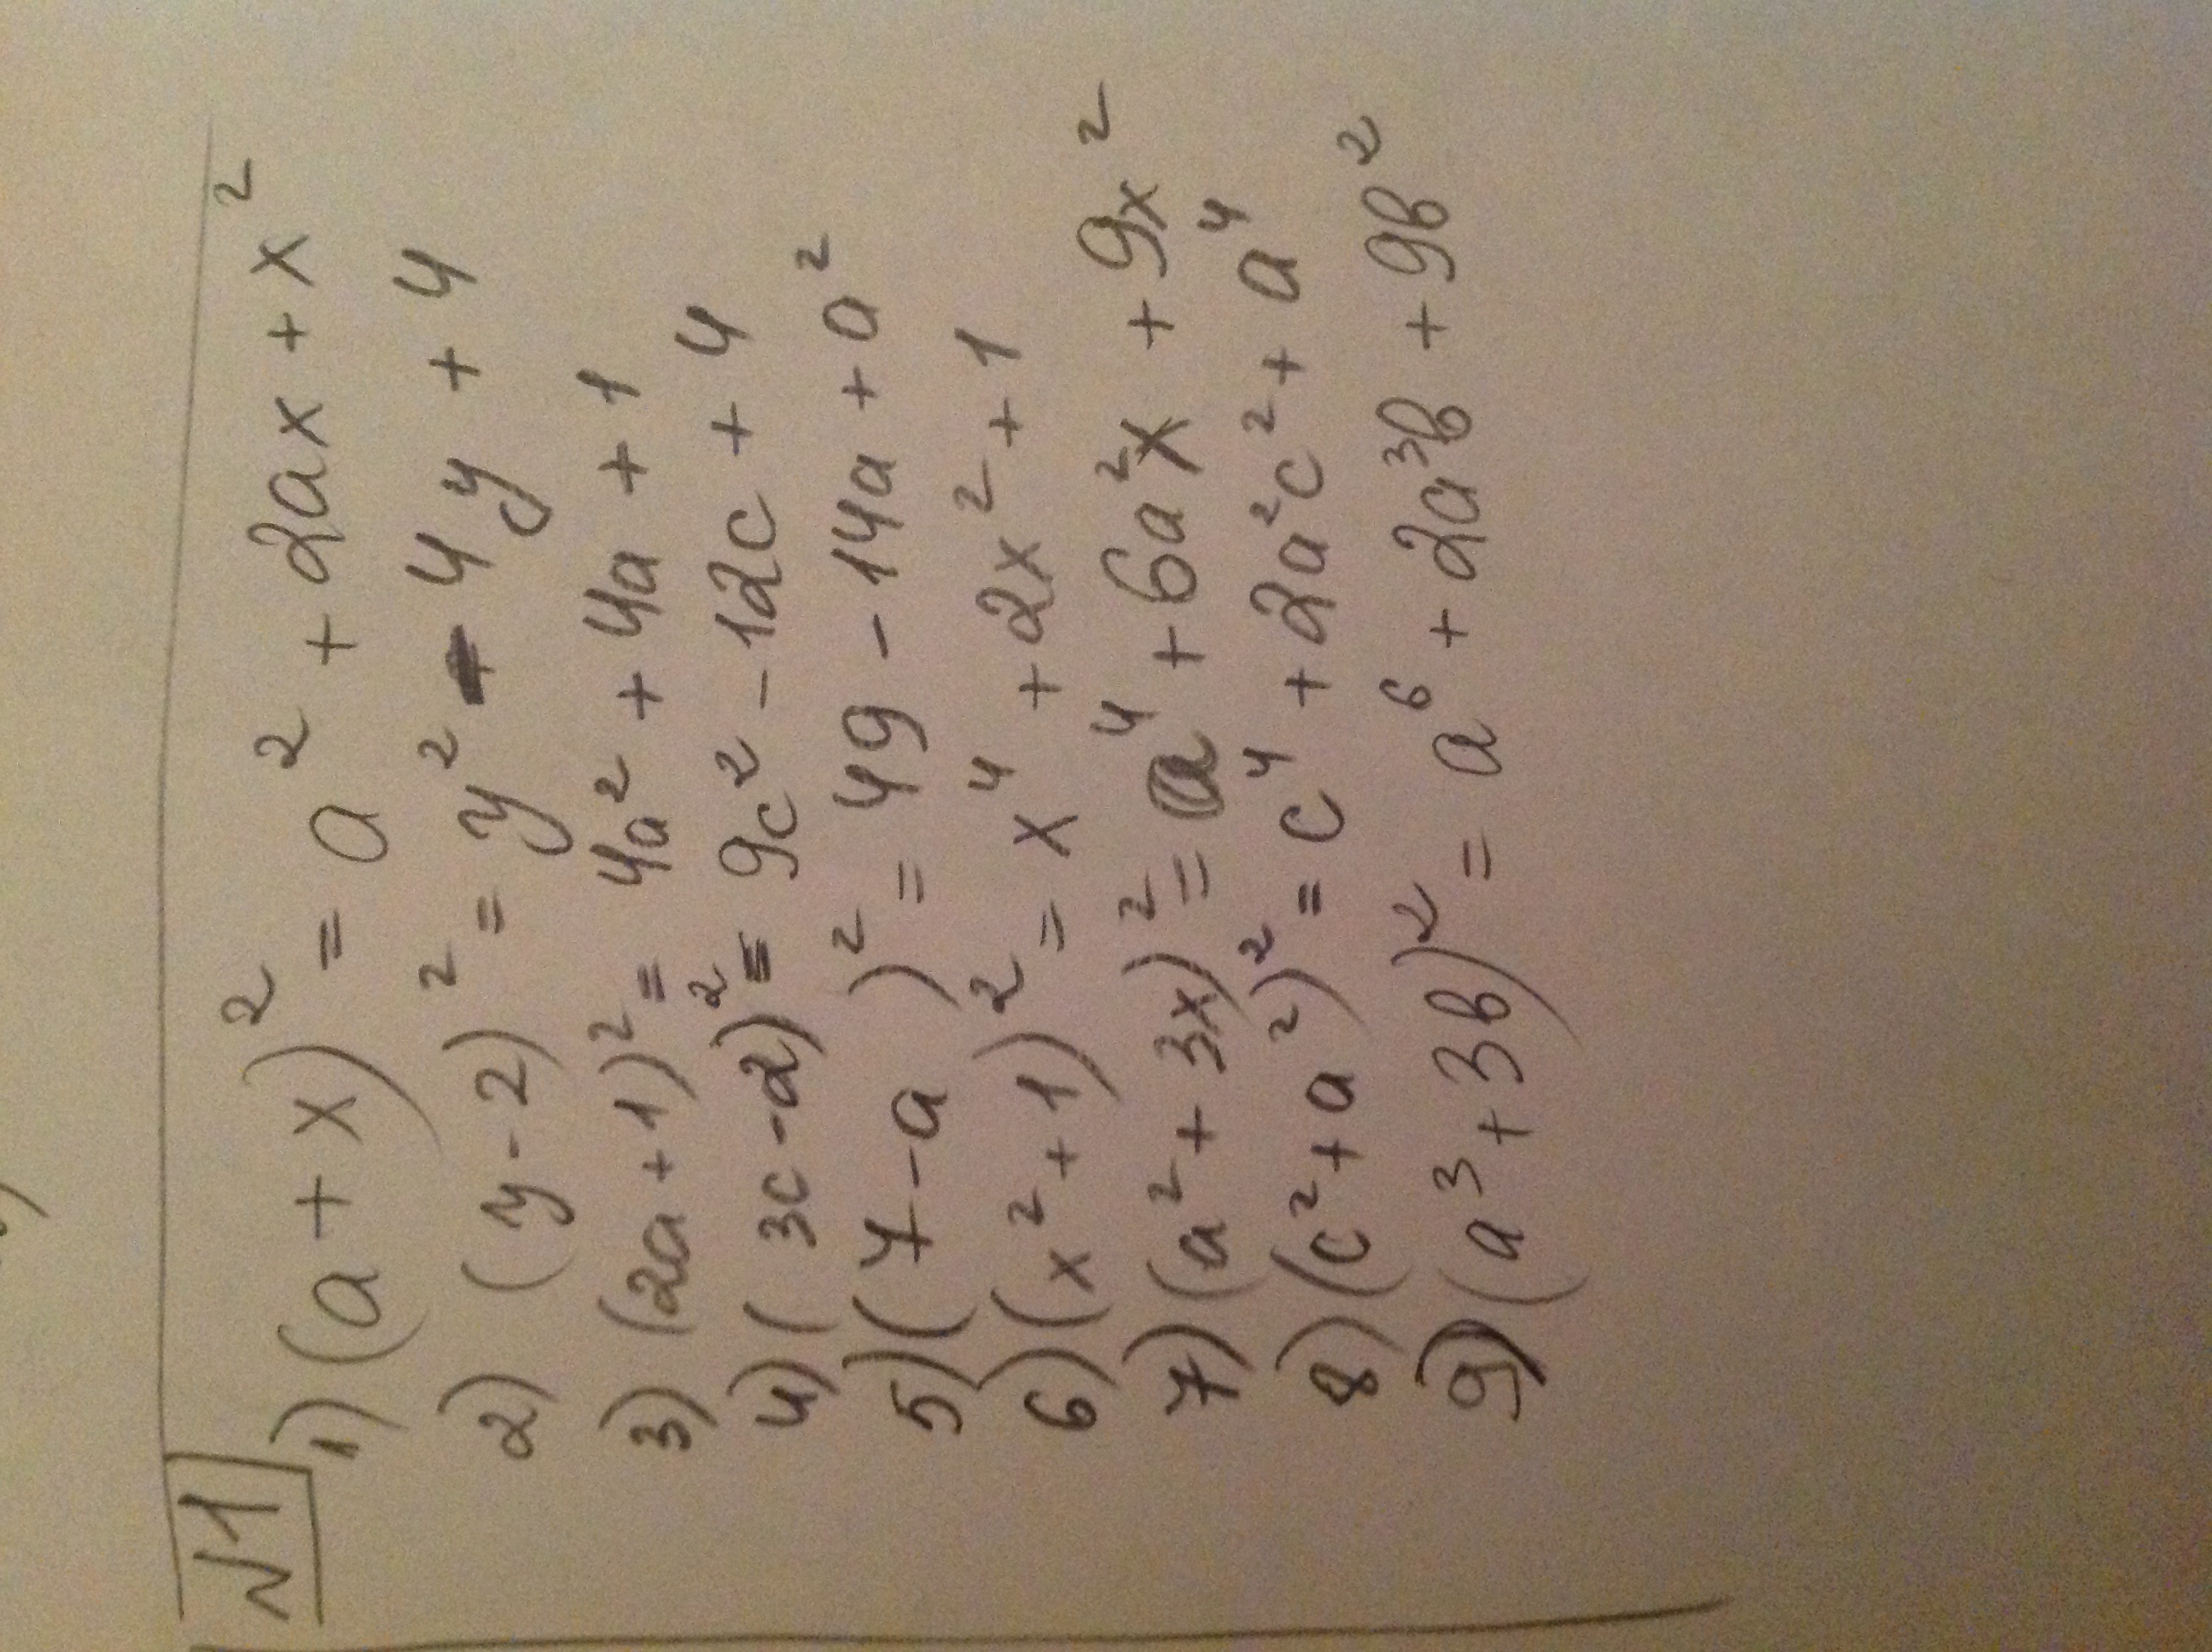 №1
1) (a + x)² = a² + 2ax + x²
2) (y - 2)² = y² - 4y + 4
3) (2a + 1)² = 4a² + 4a + 1
4) (3c - 2)² = 9c² - 12c + 4
5) (7 - a)² = 49 - 14a + a²
6) (x² + 1)² = x⁴ + 2x² + 1
7) (a² + 3x)² = a⁴ + 6a²x + 9x²
8) (c² + a²)² = c⁴ + 2a²c² + a⁴
9) (a³ + 3b)² = a⁶ + 2a³b + 9b²